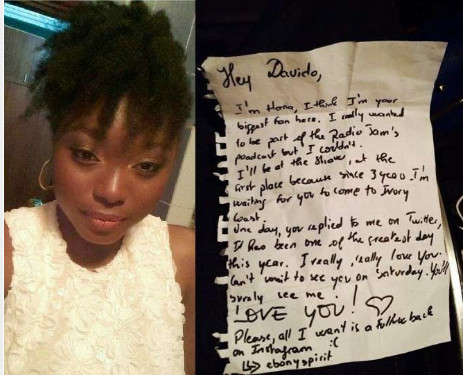 Hey Davido,
I'm Hona, I think I'm your
biggest fan here. I really wanted
to be part of the Radio Jam's
poadcast but I couldn't.
I'll be at the show, at the
first place because since 3 years I'm
waiting for you to come to Ivory
Coast.
One day, you replied to me on Twitter,
It has been one of the greatest day
this year. I really, really love you.
Can't wait to see you on Saturday. You'll
surely see me.
I LOVE YOU! ♡
Please, all I want is a follow back
on Instagram :(
↳ ebonyspirit